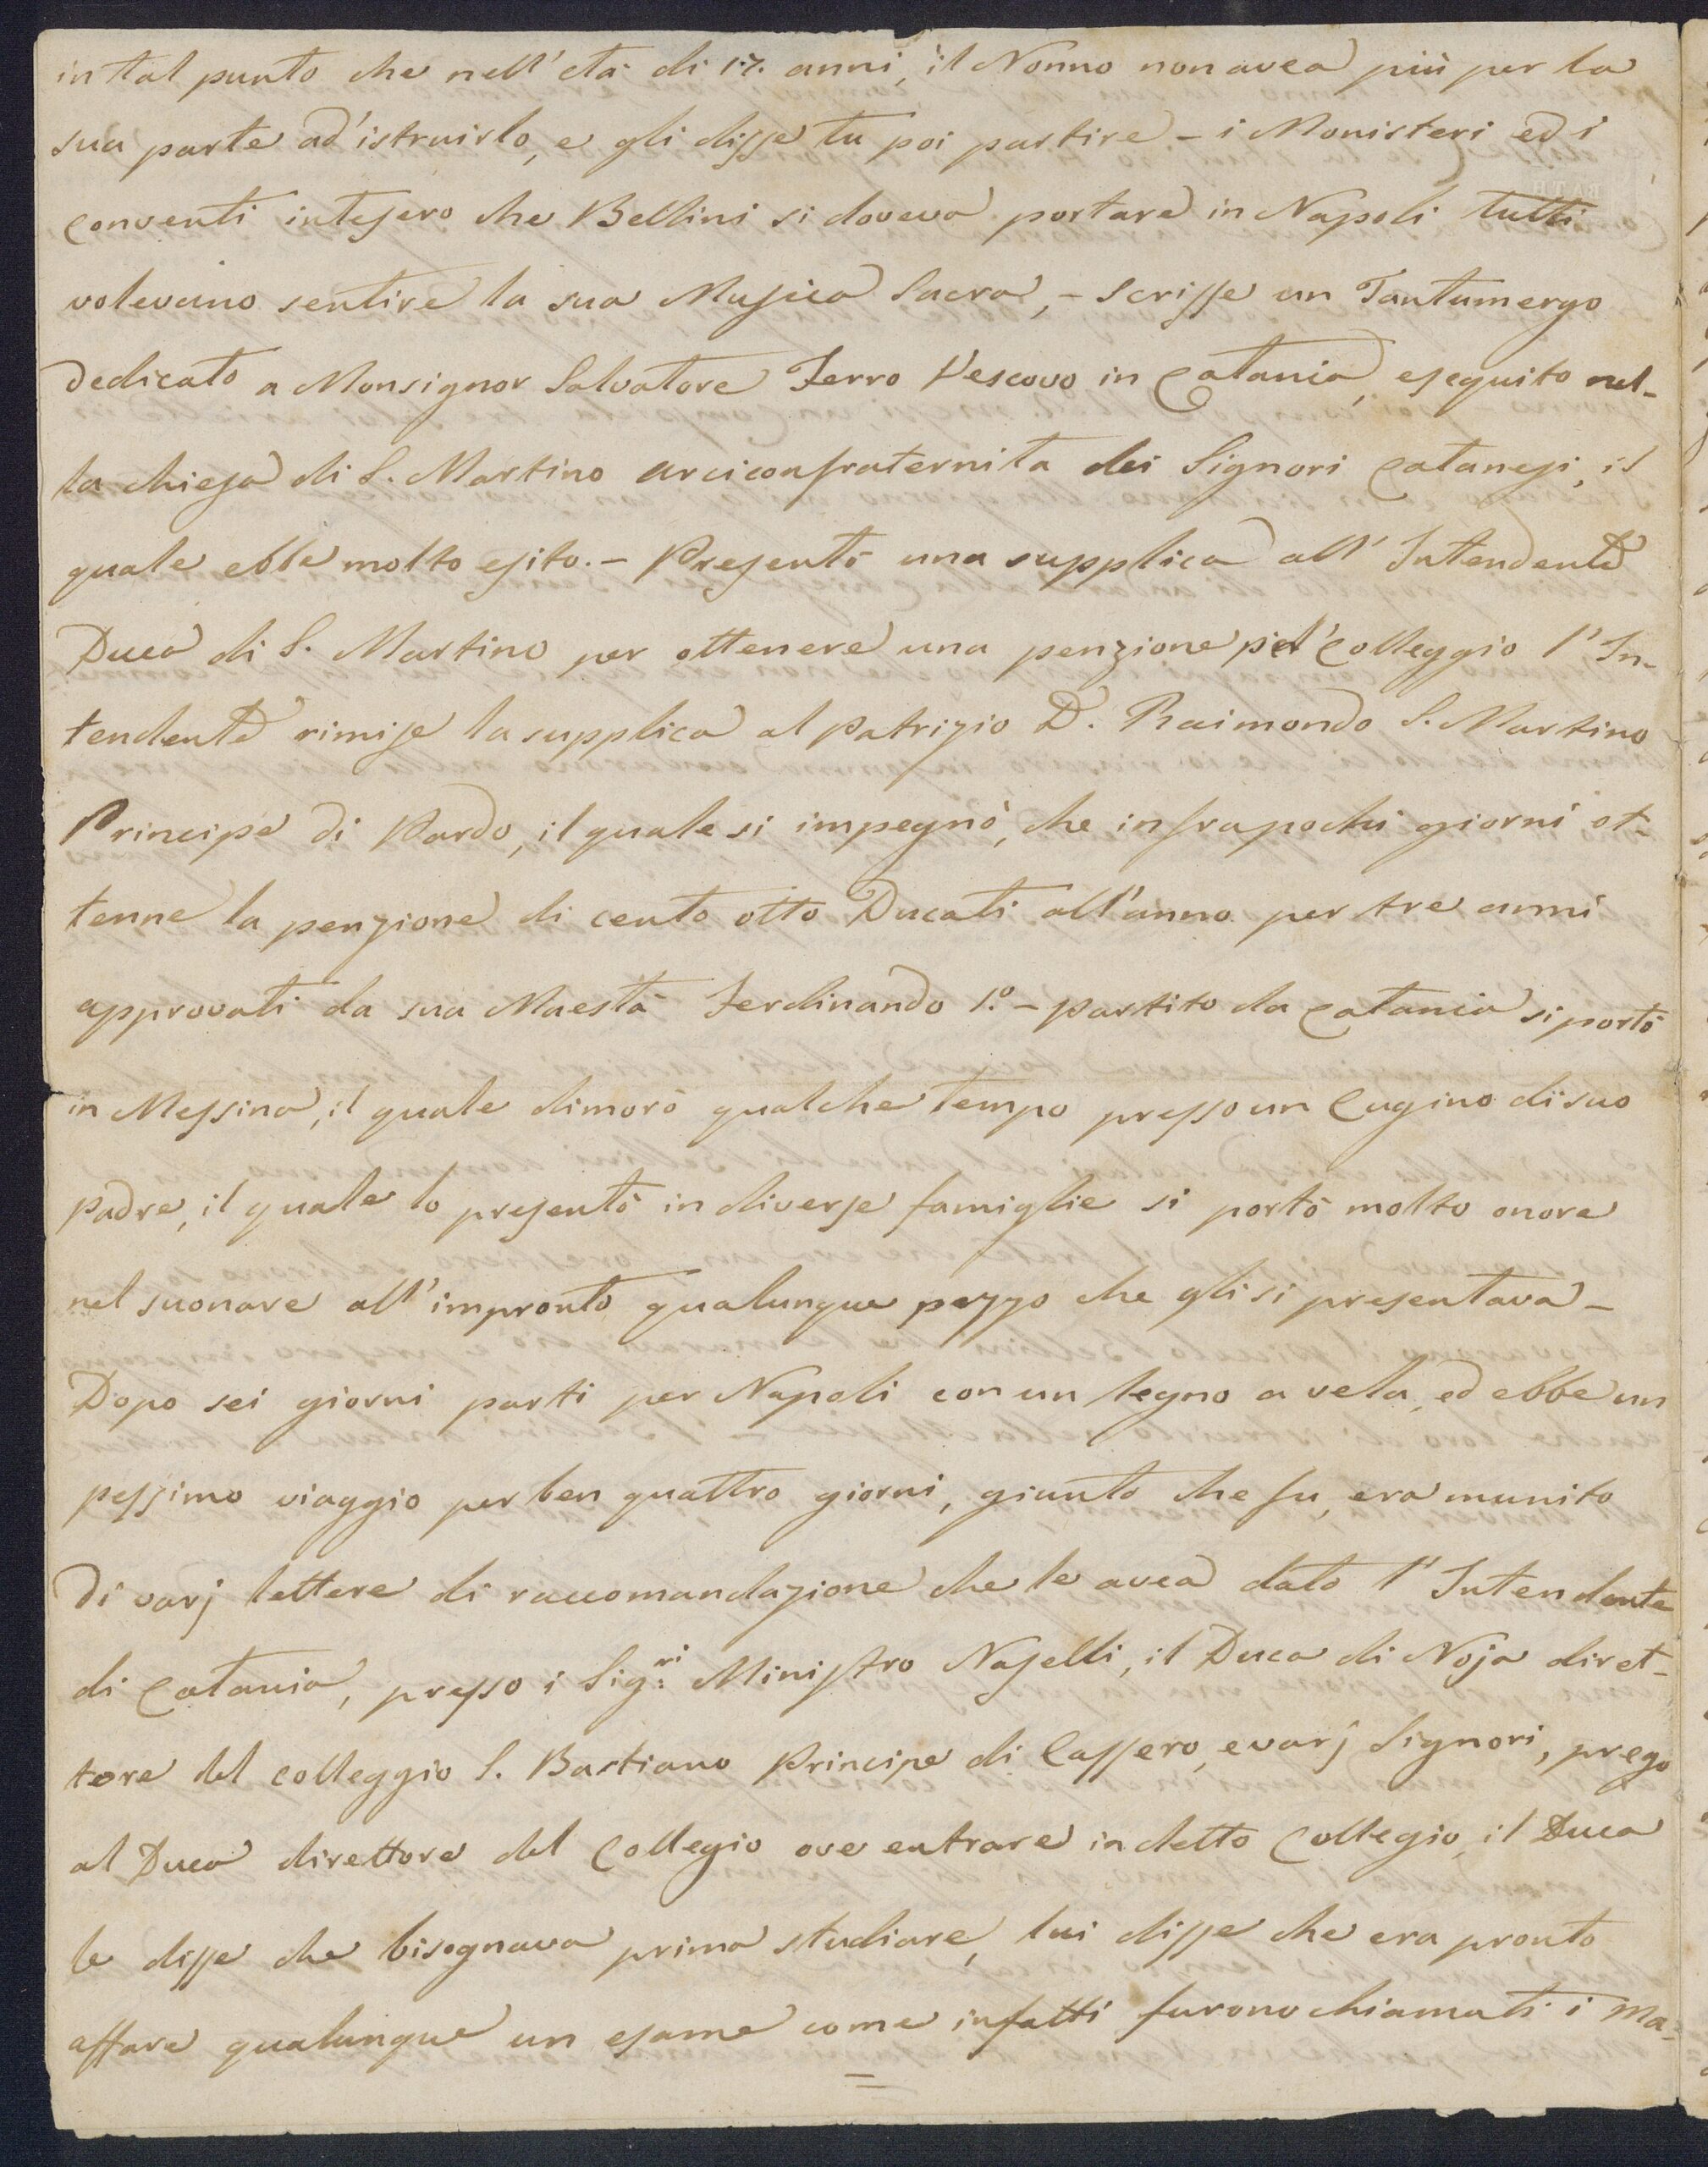 in tal punto che nell'età di 17. anni, il Nonno non avea più per la
sua parte ad'istruirlo, e gli disse tu poi partire – i Monisteri ed i
Conventi intesero che Bellini si doveva portare in Napoli tutti
volevano sentire la sua Musica Sacra, – scrisse un Tantumergo
dedicato a Monsignor Salvatore Ferro Vescovo in Catania, eseguito nel-
la chiesa di S. Martino arciconfraternita dei Signori Catanesi, il
quale ebbe molto esito. – Presentò una supplica all'Intendente
Duca di S. Martino per ottenere una penzione pel Colleggio l'In-
tendente rimise la supplica al Patrizio D. Raimondo S. Martino
Principe di Pardo, il quale si impegnò, che infra pochi giorni ot-
tenne la penzione di cento otto Ducati all'anno per tre anni
approvati da sua Maestà Ferdinando 1.º – partito da Catania si portò
in Messina, il quale dimorò qualche tempo presso un Cugino di suo
Padre, il quale lo presentò in diverse famiglie si portò molto onore
nel suonare all'impronto qualunque pezzo che gli si presentava –
Dopo sei giorni parti per Napoli con un legno a vela, ed ebbe un
pessimo viaggio per ben quattro giorni, giunto che fu, era munito
di varj lettere di raccomandazione che le avea dato l'Intendente
di Catania, presso i Sig.ri Ministro Naselli, il Duca di Noja diret-
tore del colleggio S. Bastiano Principe di Cassero, e varj Signori, prego
al Duca direttore del Collegio ove entrare in detto Collegio, il Duca
le disse che bisognava prima studiare, lui disse che era pronto
affare qualunque un esame come infatti furono chiamati i Ma-